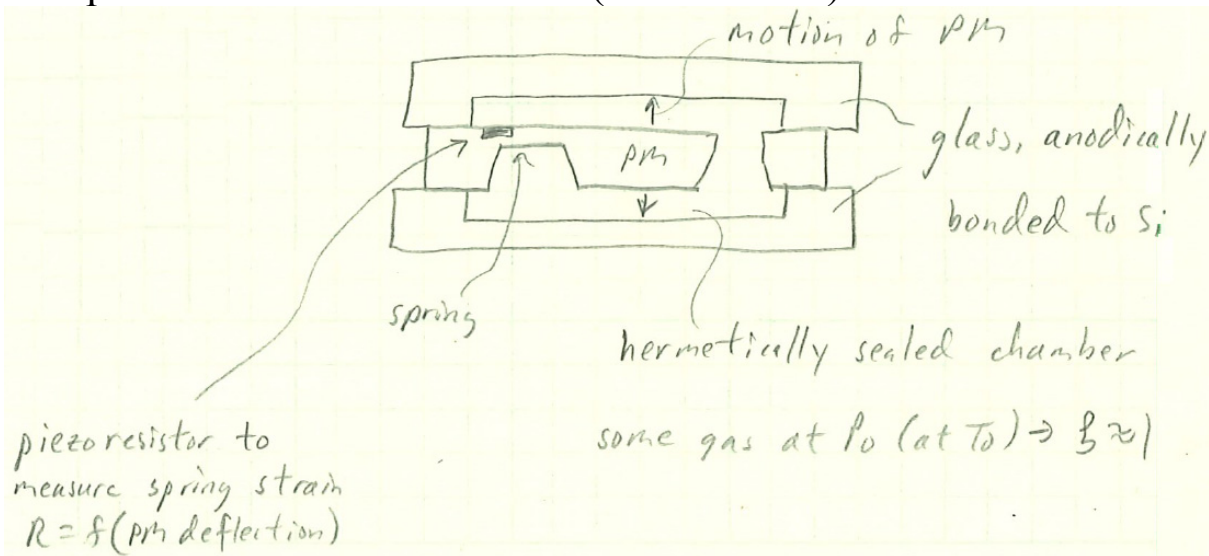 motion of PM
glass, anodically
bonded to Si
PM
spring
hermetically sealed chamber
some gas at P₀ (at T₀) ⇒ ξ ≈ 1
piezoresistor to
measure spring strain
R = f(PM deflection)